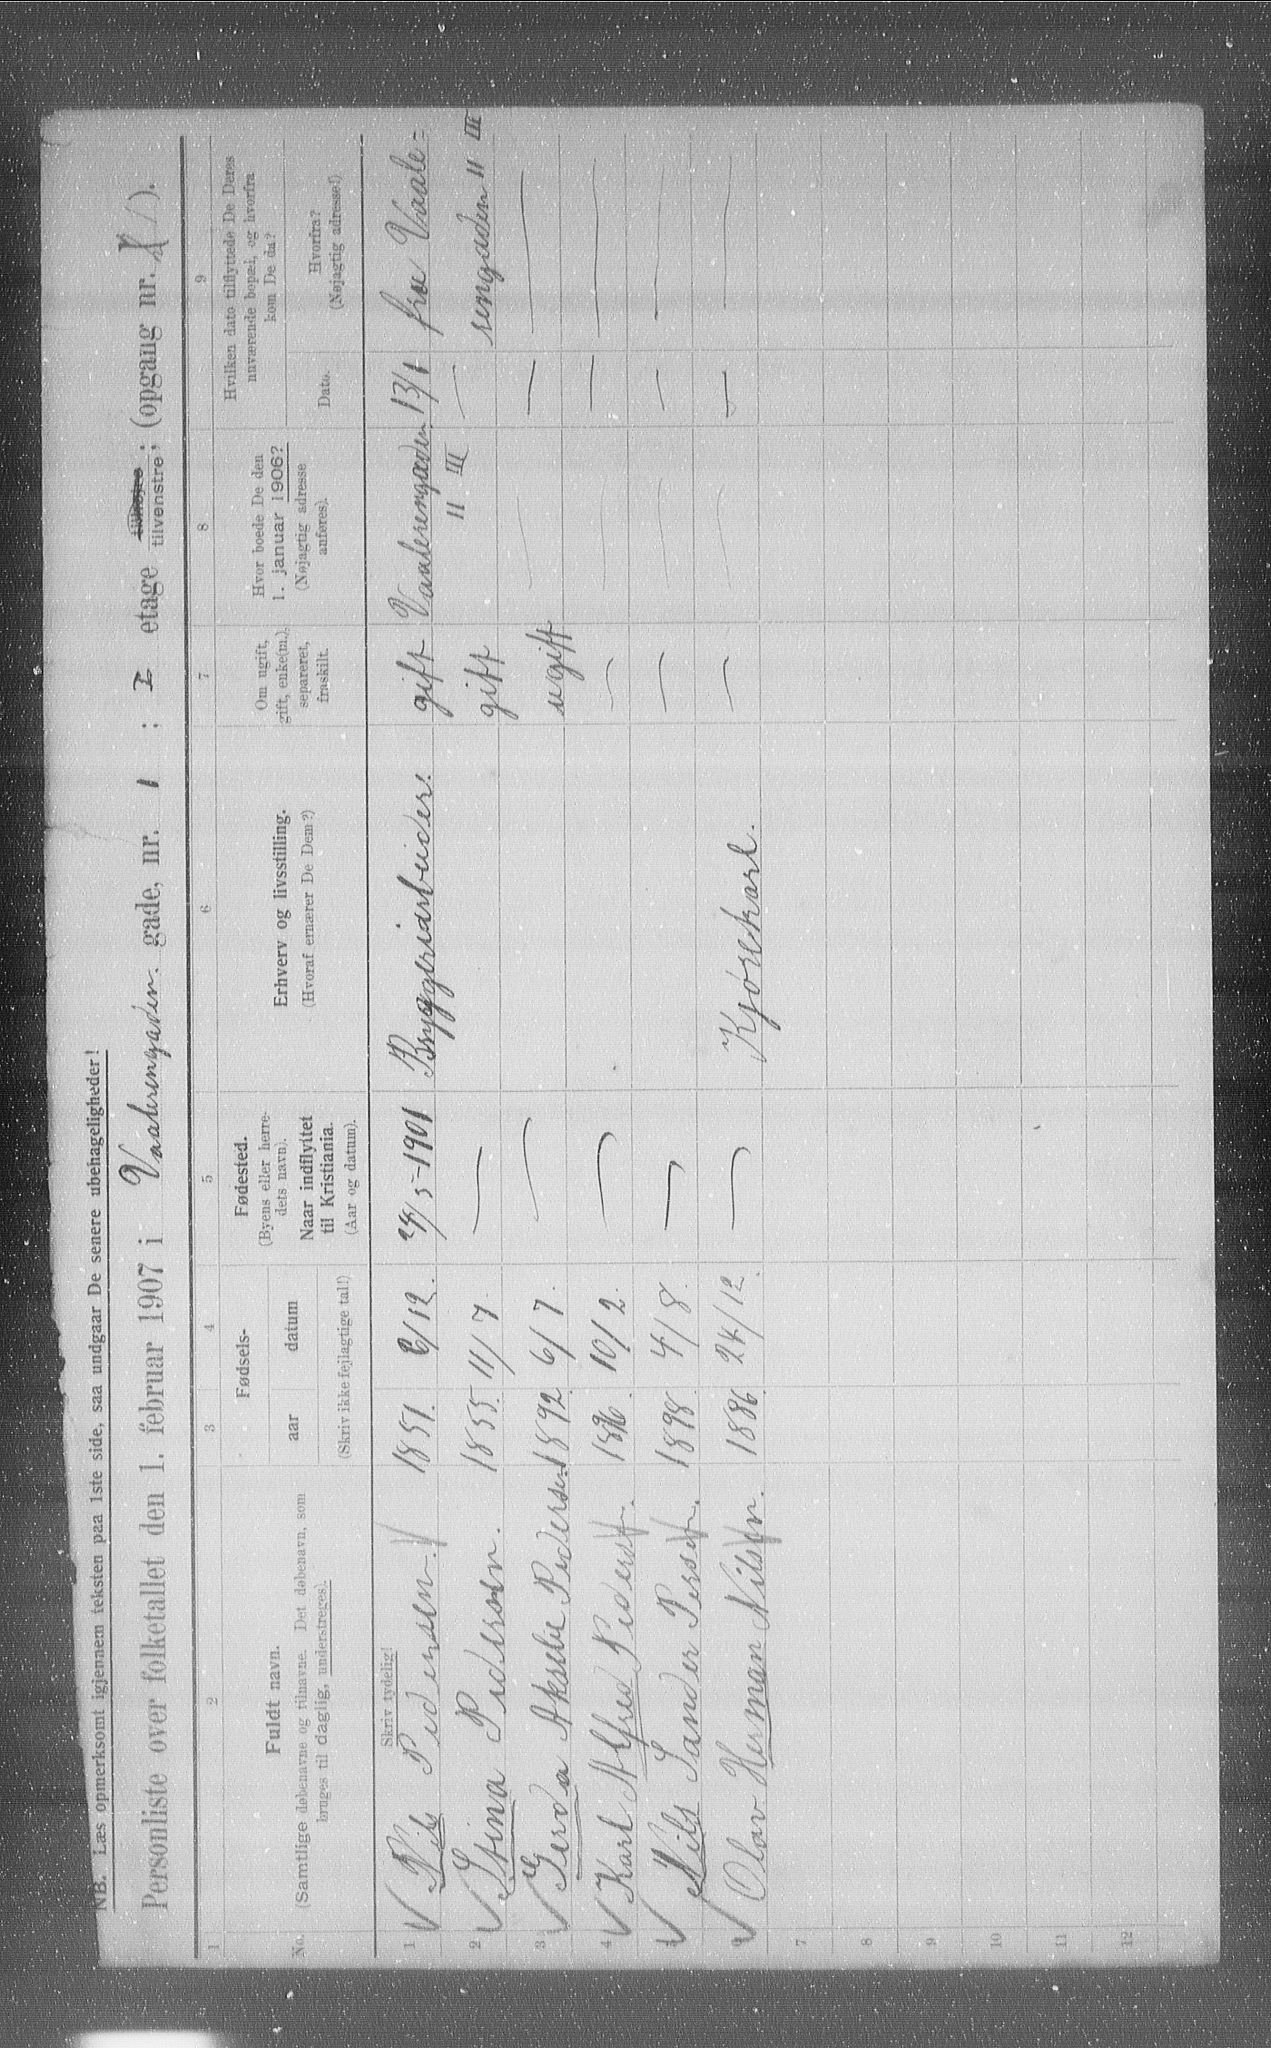 NB. Læs opmerksomt igjennem teksten paa 1ste side, saa undgaar De senere ubehageligheder!
Personliste over folketallet den 1. februar 1907 i Vaalerengaden. gade, nr. 1 ; I etage tilhøjre tilvenstre; (opgang nr. ).
1 2 3 4 5 6 7 8 9
No.
Fuldt navn.
(Samtlige døbenavne og tilnavne. Det døbenavn, som
bruges til daglig, understreges).
Fødsels-
aar datum
(Skriv ikke fejlagtige tal!)
Fødested.
(Byens eller herre-
dets navn).
Naar indflyttet
til Kristiania.
(Aar og datum).
Erhverv og livsstilling.
(Hvoraf ernærer De Dem?)
Om ugift,
gift, enke(m.),
separeret,
fraskilt.
Hvor boede De den
1. januar 1906?
(Nøjagtig adresse
anføres).
Hvilken dato tilflyttede De Deres
nuværende bopæl, og hvorfra
kom De da?
Dato.
Hvorfra?
(Nøjagtig adresse!)
Skriv tydelig!
1 Nils Pedersen. 1851. 6/12. 24/5-1901 Bryggeriarbeider. gift Vaalerengaden 11 III 13/1 fra Vaale=
2 Stina Pederson. 1855. 11/7. — gift — rengaden 11 III
3 Gerda Akselie Pedersen 1892. 6/7. — ugift — — —
4 Karl Alfred Pedersen. 1896. 10/2. — — — — —
5 Nils Sander Persen. 1898. 4/8. — — — — —
6 Olav Herman Nilsen. 1886. 24/12. — Kjørekarl. — — — —
7
8
9
10
11
12